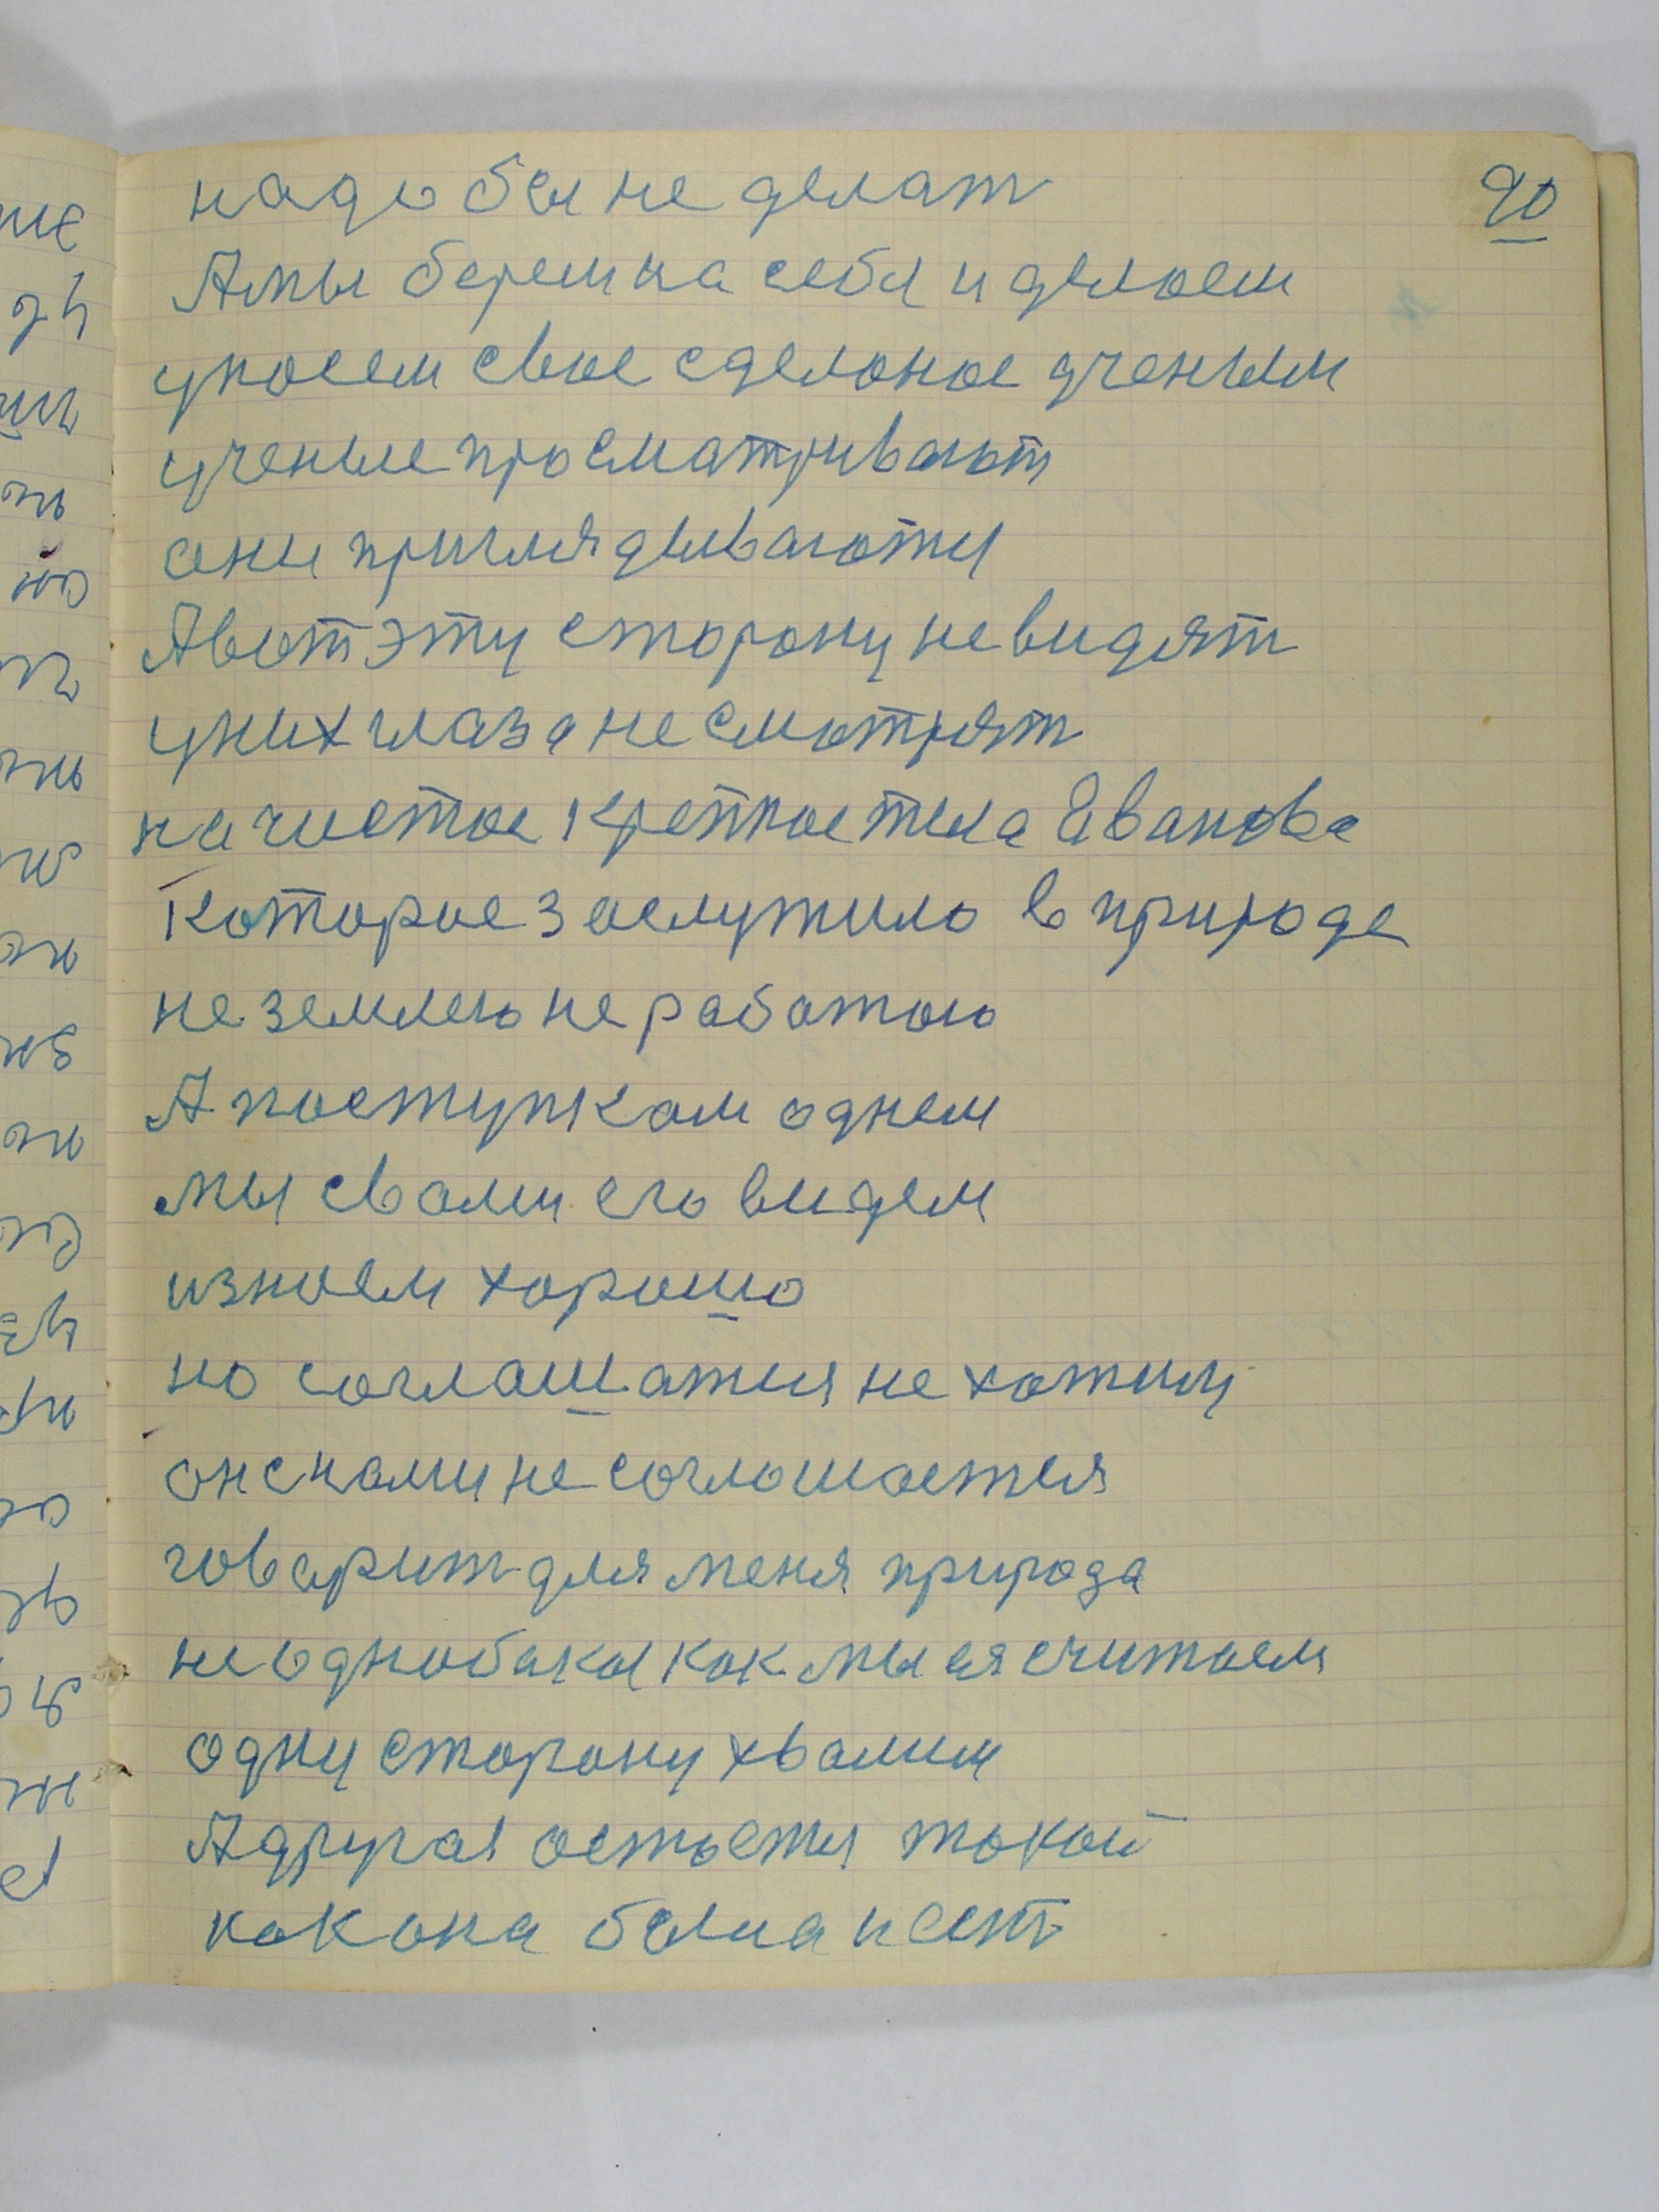 90
надо бы не делат
А мы берем на себя и делаем
упосем свое сделоное ученым
ученые просматривают
они приглядываются
А вот эту сторону не видят
у них глаза не смотрят
на чистое крепкое тела Иванова
которое заслужило в природе
не землею не работою
А поступкам однем
мы с вами его видем
и знаем хорошо
но соглашатися не хотим
он с нами не соглошается
говорит для меня природа
не однобакая как мы ея считаем
одну сторону хвалим
А другая остается такой
как она была и ест